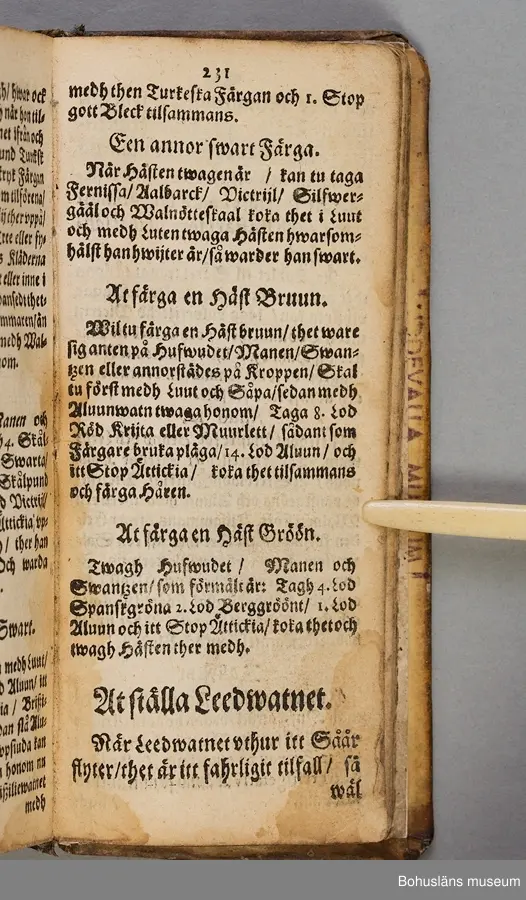 231
medh then Turkeska Färgan och 1. Stop
gott Bleck tilsammans.
Een annor swart Färga.
När Hästen twagen är / kan tu taga
Fernissa/ Aalbarck/ Victrijl/ Silfwer-
gääl och Walnötteskaal koka thet i Luut
och medh Luten twaga Hästen hwarsom-
hälst han hwijter är/ så warder han swart.
At färga en Häst Bruun.
Wil tu färga en Häst bruun/ thet ware
sig anten på Hufwudet/ Manen/ Swan-
tzen eller annorstädes på Kroppen/ Skal
tu först medh Luut och Såpa/ sedan medh
Aluunwatn twaga honom/ Taga 8. Lod
Röd Krijta eller Muurlett/ sådant som
Färgare bruka pläga/ 14. Lod Aluun/ och
itt Stop Ättickia/ koka thet tilsammans
och färga Håren.
At färga en Häst Gröön.
Twagh Hufwudet / Manen och
Swantzen/ som förmält är: Tagh 4. Lod
Spanskgröna 2. Lod Berggröönt/ 1. Lod
Aluun och itt Stop Ättickia/ koka thet och
twagh Hästen ther medh.
At ställa Leedwatnet.
När Leedwatnet vthur itt Såår
flyter/ thet är itt fahrligit tilfall/ så
wäl
hwar ock
när han til-
Färgan
Kläderna
eller inne i
medh Wal-
Manen och
4. Skål-
Swarta/
Skålpund
Victrijl/
ther han
och warda
Swart.
medh Luut/
Aluun/ itt
honom nu
medh
UDDEVALLA MUSEUM
Bohusläns museum